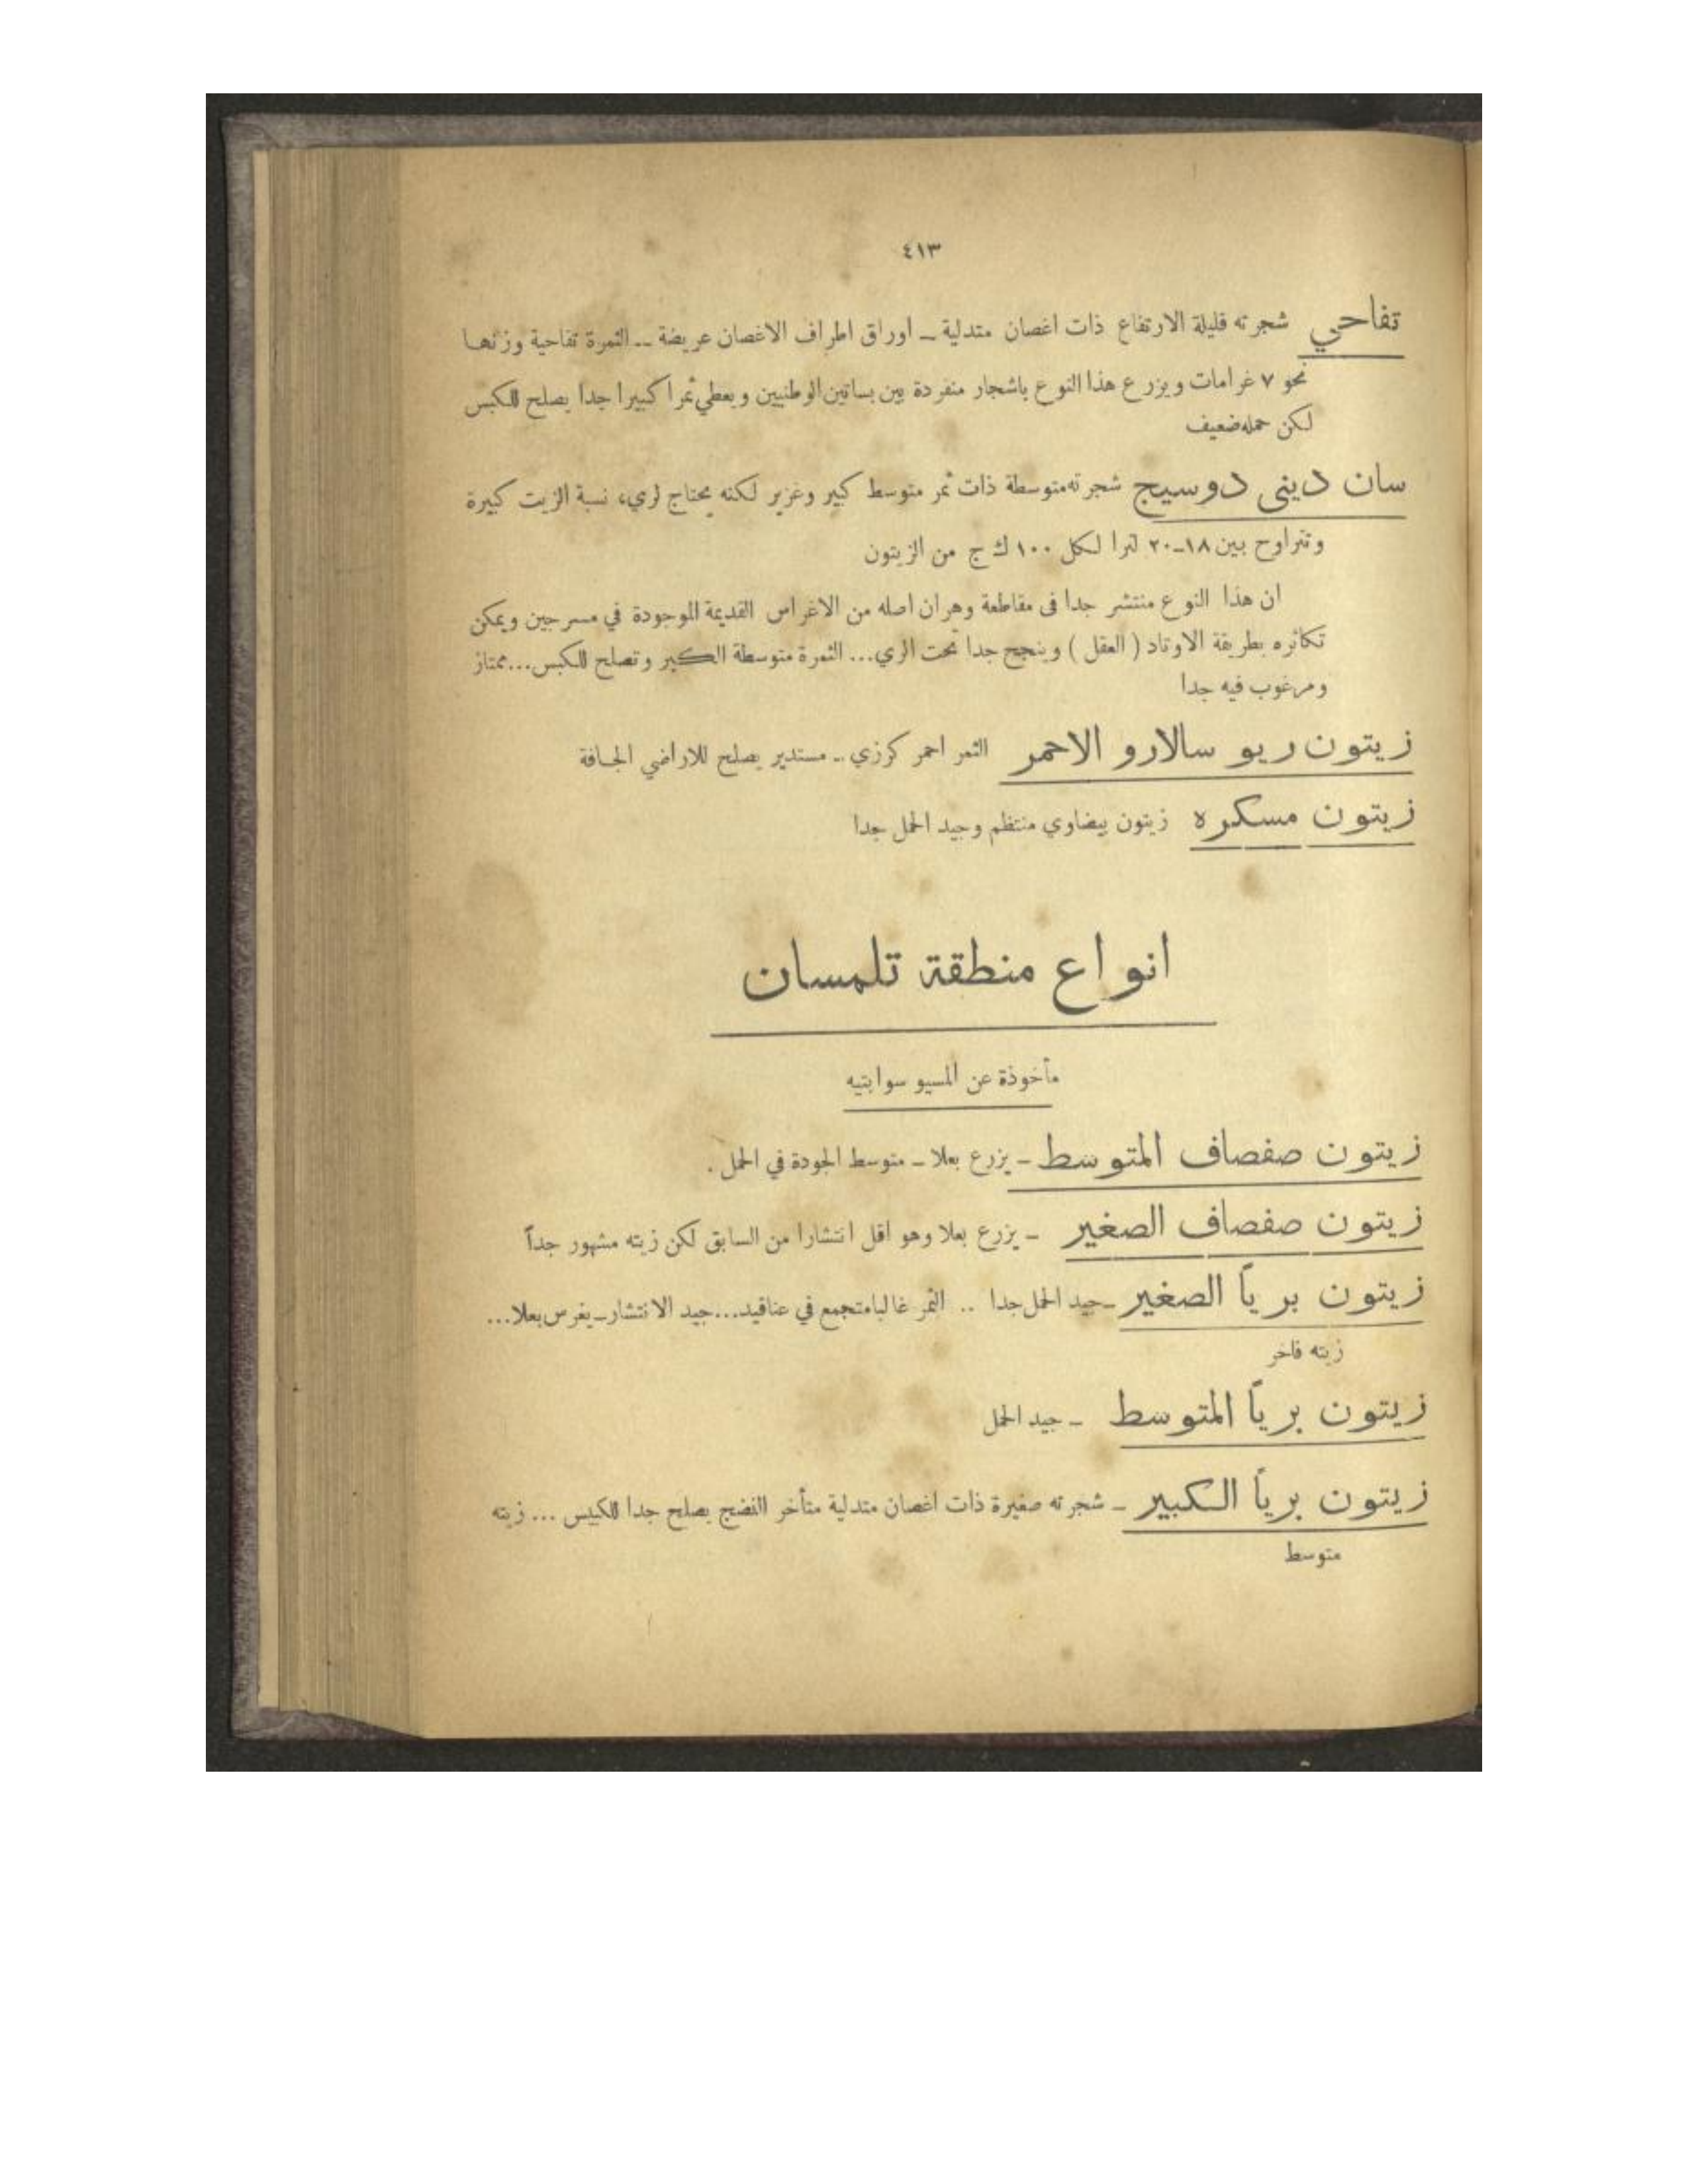 ٤١٣
تفاحي شجرته قليلة الارتفاع ذات اغصان متدلية ــ اوراق اطراف الاغصان عريضة ــ الثمرة تفاحية وزنها
نحو ٧ غرامات ويزرع هذا النوع باشجار منفردة بين بساتين الوطنيين ويعطي ثمرا كبيرا جدا يصلح للكبس
لكن حمله ضعيف
سان ديني دوسيج شجرته متوسطة ذات ثمر متوسط كبير وغزير لكنه يحتاج لري، نسبة الزيت كبيرة
وتتراوح بين ١٨ــ٢٠ لترا لكل ١٠٠ ك ج من الزيتون
ان هذا النوع منتشر جدا فى مقاطعة وهران اصله من الاغراس القديمة الموجودة في مسرجين ويمكن
تكاثره بطريقة الاوتاد ( العقل ) وينجح جدا تحت الري... الثمرة متوسطة الكبر وتصلح للكبس...ممتاز
ومرغوب فيه جدا
زيتون ريو سالارو الاحمر الثمر احمر كرزي ــ مستدير يصلح للاراضي الجافة
زيتون مسكره زيتون بيضاوي منتظم وجيد الحمل جدا
انواع منطقة تلمسان
مأخوذة عن المسيو سوابتيه
زيتون صفصاف المتوسط ــ يزرع بعلا ــ متوسط الجودة في الحمل .
زيتون صفصاف الصغير ــ يزرع بعلا وهو اقل انتشارا من السابق لكن زيته مشهور جداً
زيتون برياً الصغير ــ جيد الحمل جدا .. الثمر غالبا متجمع في عناقيد...جيد الانتشار ــ يغرس بعلا...
زيته فاخر
زيتون برياً المتوسط ــ جيد الحمل
زيتون برياً الكبير ــ شجرته صغيرة ذات اغصان متدلية متأخر النضج يصلح جدا للكبيس ... زيته
متوسط